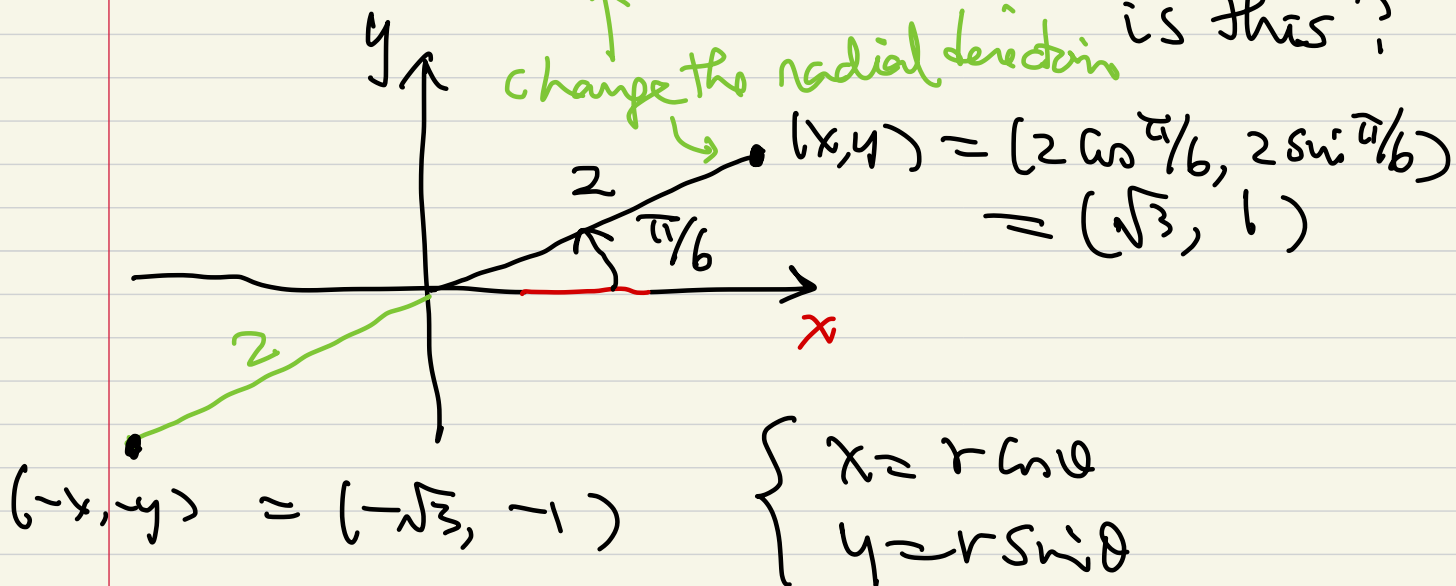 is this?
y
change the radial direction
(x,y) = (2 cos π/6, 2 sin π/6)
2
π/6
= (√3, 1)
x
2
(-x,-y) = (-√3, -1)
{ x = r cos θ
y = r sin θ